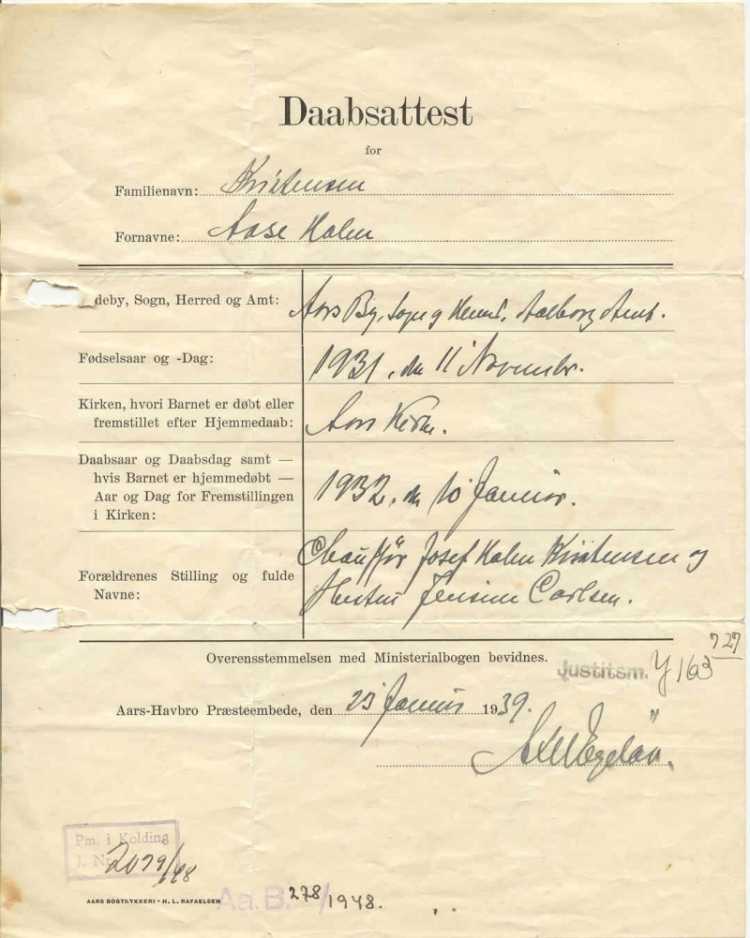 Daabsattest
for
Familienavn: Kristensen
Fornavne: Aase Holm
deby, Sogn, Herred og Amt: Aars By, Sogn og Herred, Aalborg Amt.
Fødselsaar og -Dag: 1931, den 11 November.
Kirken, hvori Barnet er døbt eller
fremstillet efter Hjemmedaab: Aars Kirke.
Daabsaar og Daabsdag samt —
hvis Barnet er hjemmedøbt —
Aar og Dag for Fremstillingen
i Kirken: 1932, den 10 Januar.
Forældrenes Stilling og fulde
Navne: Chauffør Josef Holm Kristensen og
Hustru Jensine Carlsen.
Overensstemmelsen med Ministerialbogen bevidnes.
Justitsm. Y 163 727
Aars-Havbro Præsteembede, den 23 Januar 1939.
Pm. i Kolding
J. Nr. 2079/48
AARS BOGTRYKKERI - H. L. RAFAELSEN
Aa. B. 278/1948.